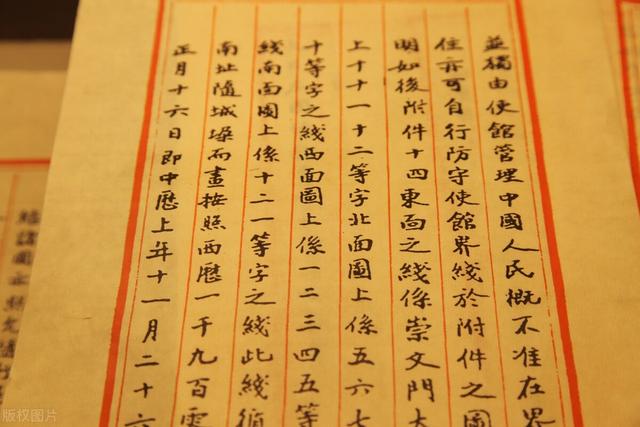 並獨由使館管理中國人民概不准在界
住亦可自行防守使館界綫於附件之圖
明如後附件十四東面之綫係崇文門大
上十十一十二等字北面圖上係五六七
十等字之綫西面圖上係一二三四五等
綫南面圖上係十二一等字之綫此綫循
南址隨城垛而畫按照西歷一千九百零
正月十六日即中歷上年十一月二十六
版权图片